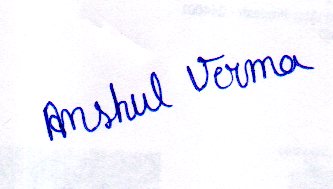 Anshul Verma